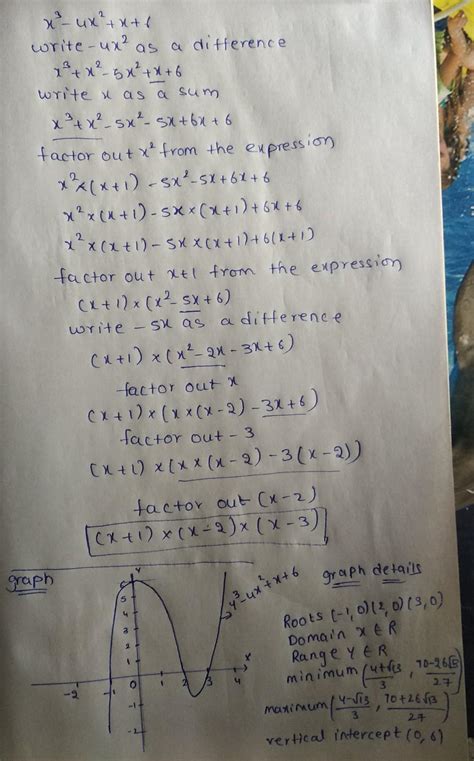 x³-4x²+x+6
write -4x² as a difference
x³+x²-5x²+x+6
write x as a sum
x³+x²-5x²-5x+6x+6
factor out x² from the expression
x²×(x+1)-5x²-5x+6x+6
x²×(x+1)-5x×(x+1)+6x+6
x²×(x+1)-5x×(x+1)+6(x+1)
factor out x+1 from the expression
(x+1)×(x²-5x+6)
write -5x as a difference
(x+1)×(x²-2x-3x+6)
factor out x
(x+1)×(x×(x-2)-3x+6)
factor out -3
(x+1)×(x×(x-2)-3(x-2))
factor out (x-2)
(x+1)×(x-2)×(x-3)
graph
Y
6
5
4
3
2
1
-2
0
1
2
3
4
X
-1
-2
x³-4x²+x+6
graph details
Roots (-1,0)(2,0)(3,0)
Domain x∈R
Range Y∈R
minimum (4+√13/3, 70-26√13/27)
maximum (4-√13/3, 70+26√13/27)
vertical intercept (0,6)